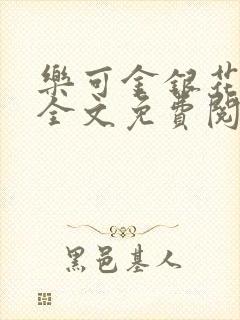 樂可金銀花
全文免費閱
黑邑基人